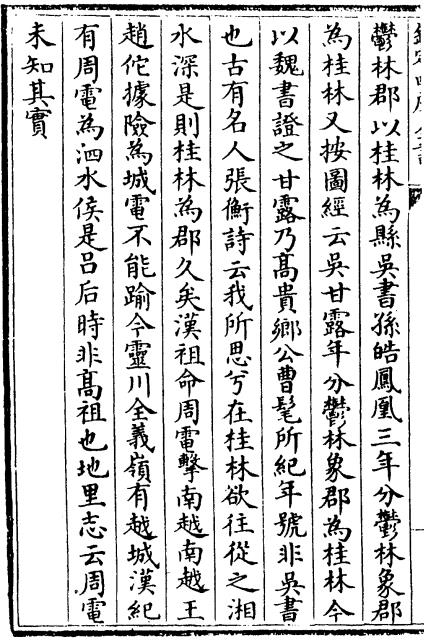 鬱林郡以桂林為縣吳書孫皓鳳凰三年分鬱林象郡
為桂林又按圖經云吳甘露年分鬱林象郡為桂林今
以魏書證之甘露乃髙貴鄉公曹髦所紀年號非吳書
也古有名人張衡詩云我所思兮在桂林欲往從之湘
水深是則桂林為郡久矣漢祖命周電擊南越南越王
趙佗據險為城電不能踰今靈川全義嶺有越城漢紀
有周電為泗水侯是吕后時非髙祖也地里志云周電
未知其實